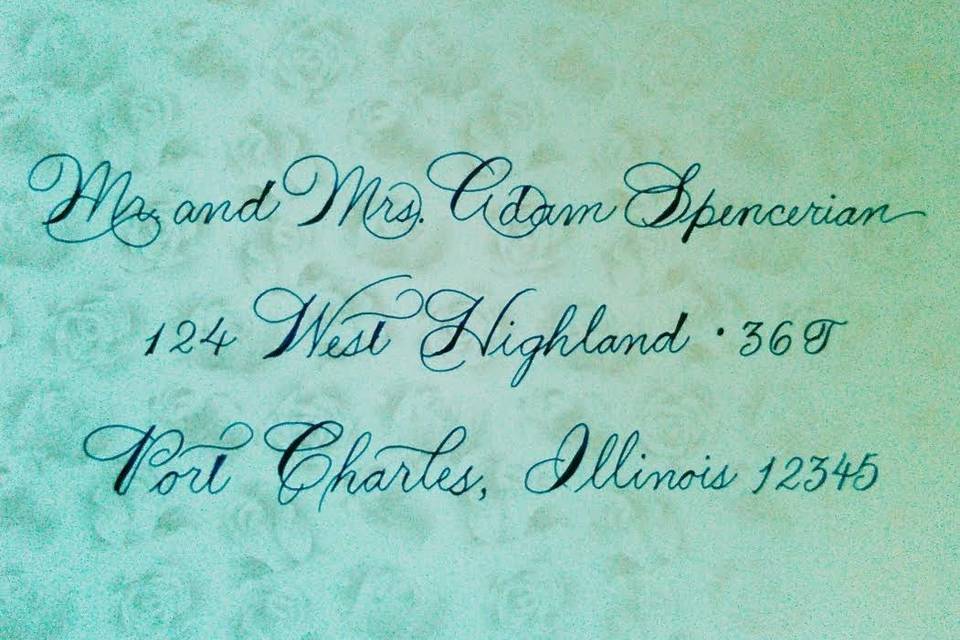 Mr. and Mrs. Adam Spencerian
124 West Highland · 36T
Port Charles, Illinois 12345